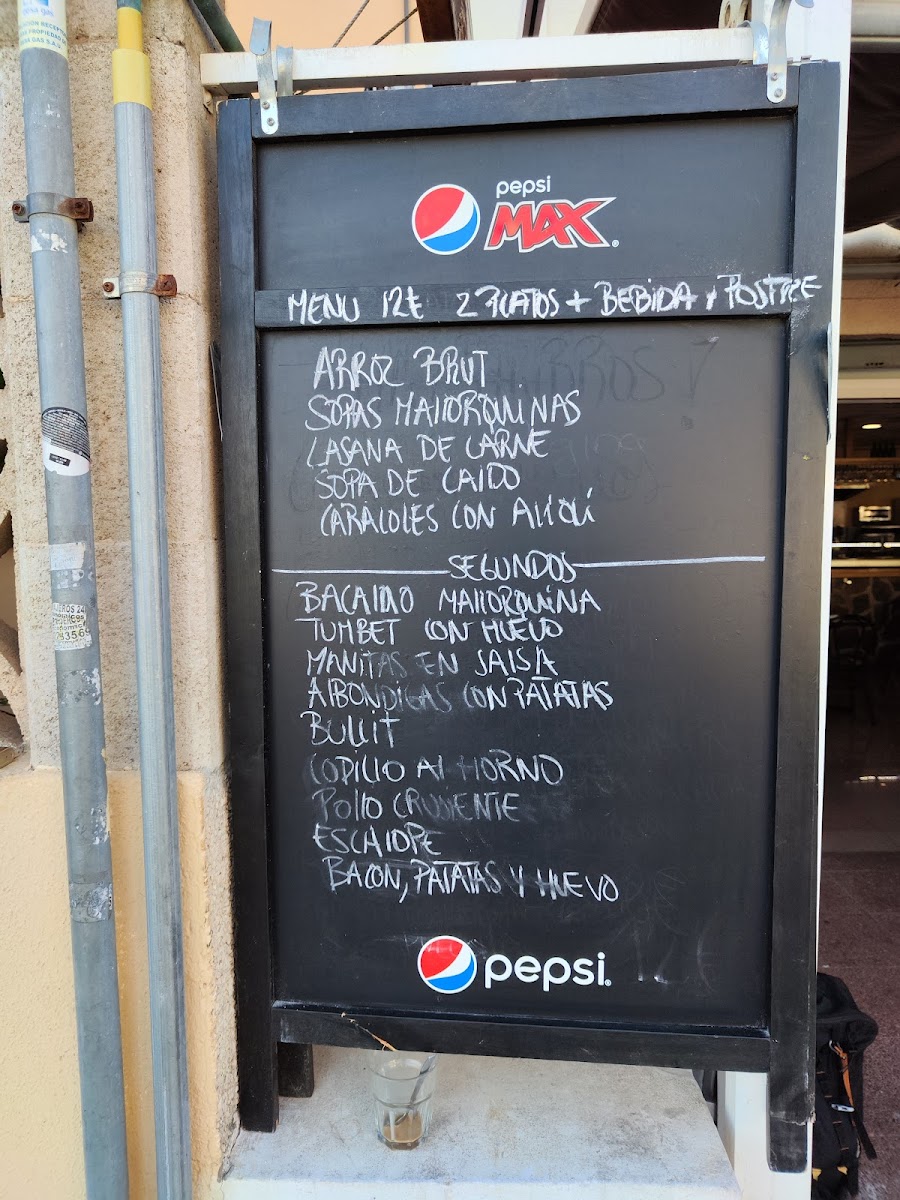 pepsi
MAX
MENU 12€ 2 PLATOS + BEBIDA Y POSTRE
ARROZ BRUT
SOPAS MALLORQUINAS
LASANA DE CARNE
SOPA DE CALDO
CARACOLES CON ALLIOLI
SEGUNDOS
BACALAO MALLORQUINA
TUMBET CON HUEVO
MANITAS EN SALSA
ALBONDIGAS CON PATATAS
BULLIT
CODILLO AL HORNO
POLLO CRUJIENTE
ESCALOPE
BACON, PATATAS Y HUEVO
pepsi